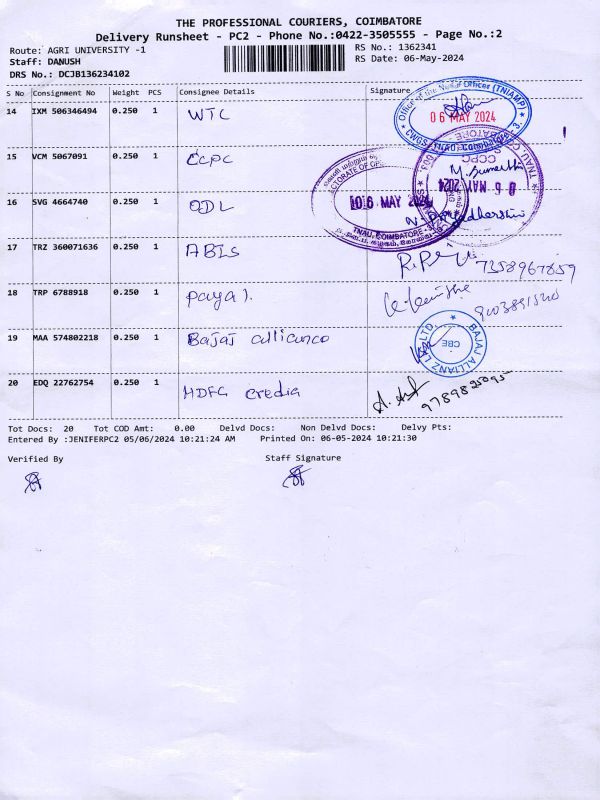 THE PROFESSIONAL COURIERS, COIMBATORE
Delivery Runsheet - PC2 - Phone No.:0422-3505555 - Page No.:2
Route: AGRI UNIVERSITY -1
RS No.: 1362341
Staff: DANUSH
RS Date: 06-May-2024
DRS No.: DCJB136234102
S No Consignment No Weight PCS Consignee Details Signature
14 IXM 506346494 0.250 1 WTC
Office of the Nodal Officer (TNIAMP)
06 MAY 2024
CWGS, TNAU, Coimbatore - 3.
15 VCM 5067091 0.250 1 CCPC
06 MAY 2024
16 SVG 4664740 0.250 1 ODL
06 MAY 2024
TNAU, COIMBATORE - 3
17 TRZ 360071636 0.250 1 ABIS
7358967859
18 TRP 6788918 0.250 1 payal.
19 MAA 574802218 0.250 1 Bajaj allianco
BAJAJ ALLIANZ LTD.
CBE
20 EDQ 22762754 0.250 1 HDFC credia
Tot Docs: 20 Tot COD Amt: 0.00 Delvd Docs: Non Delvd Docs: Delvy Pts:
Entered By :JENIFERPC2 05/06/2024 10:21:24 AM Printed On: 06-05-2024 10:21:30
Verified By Staff Signature